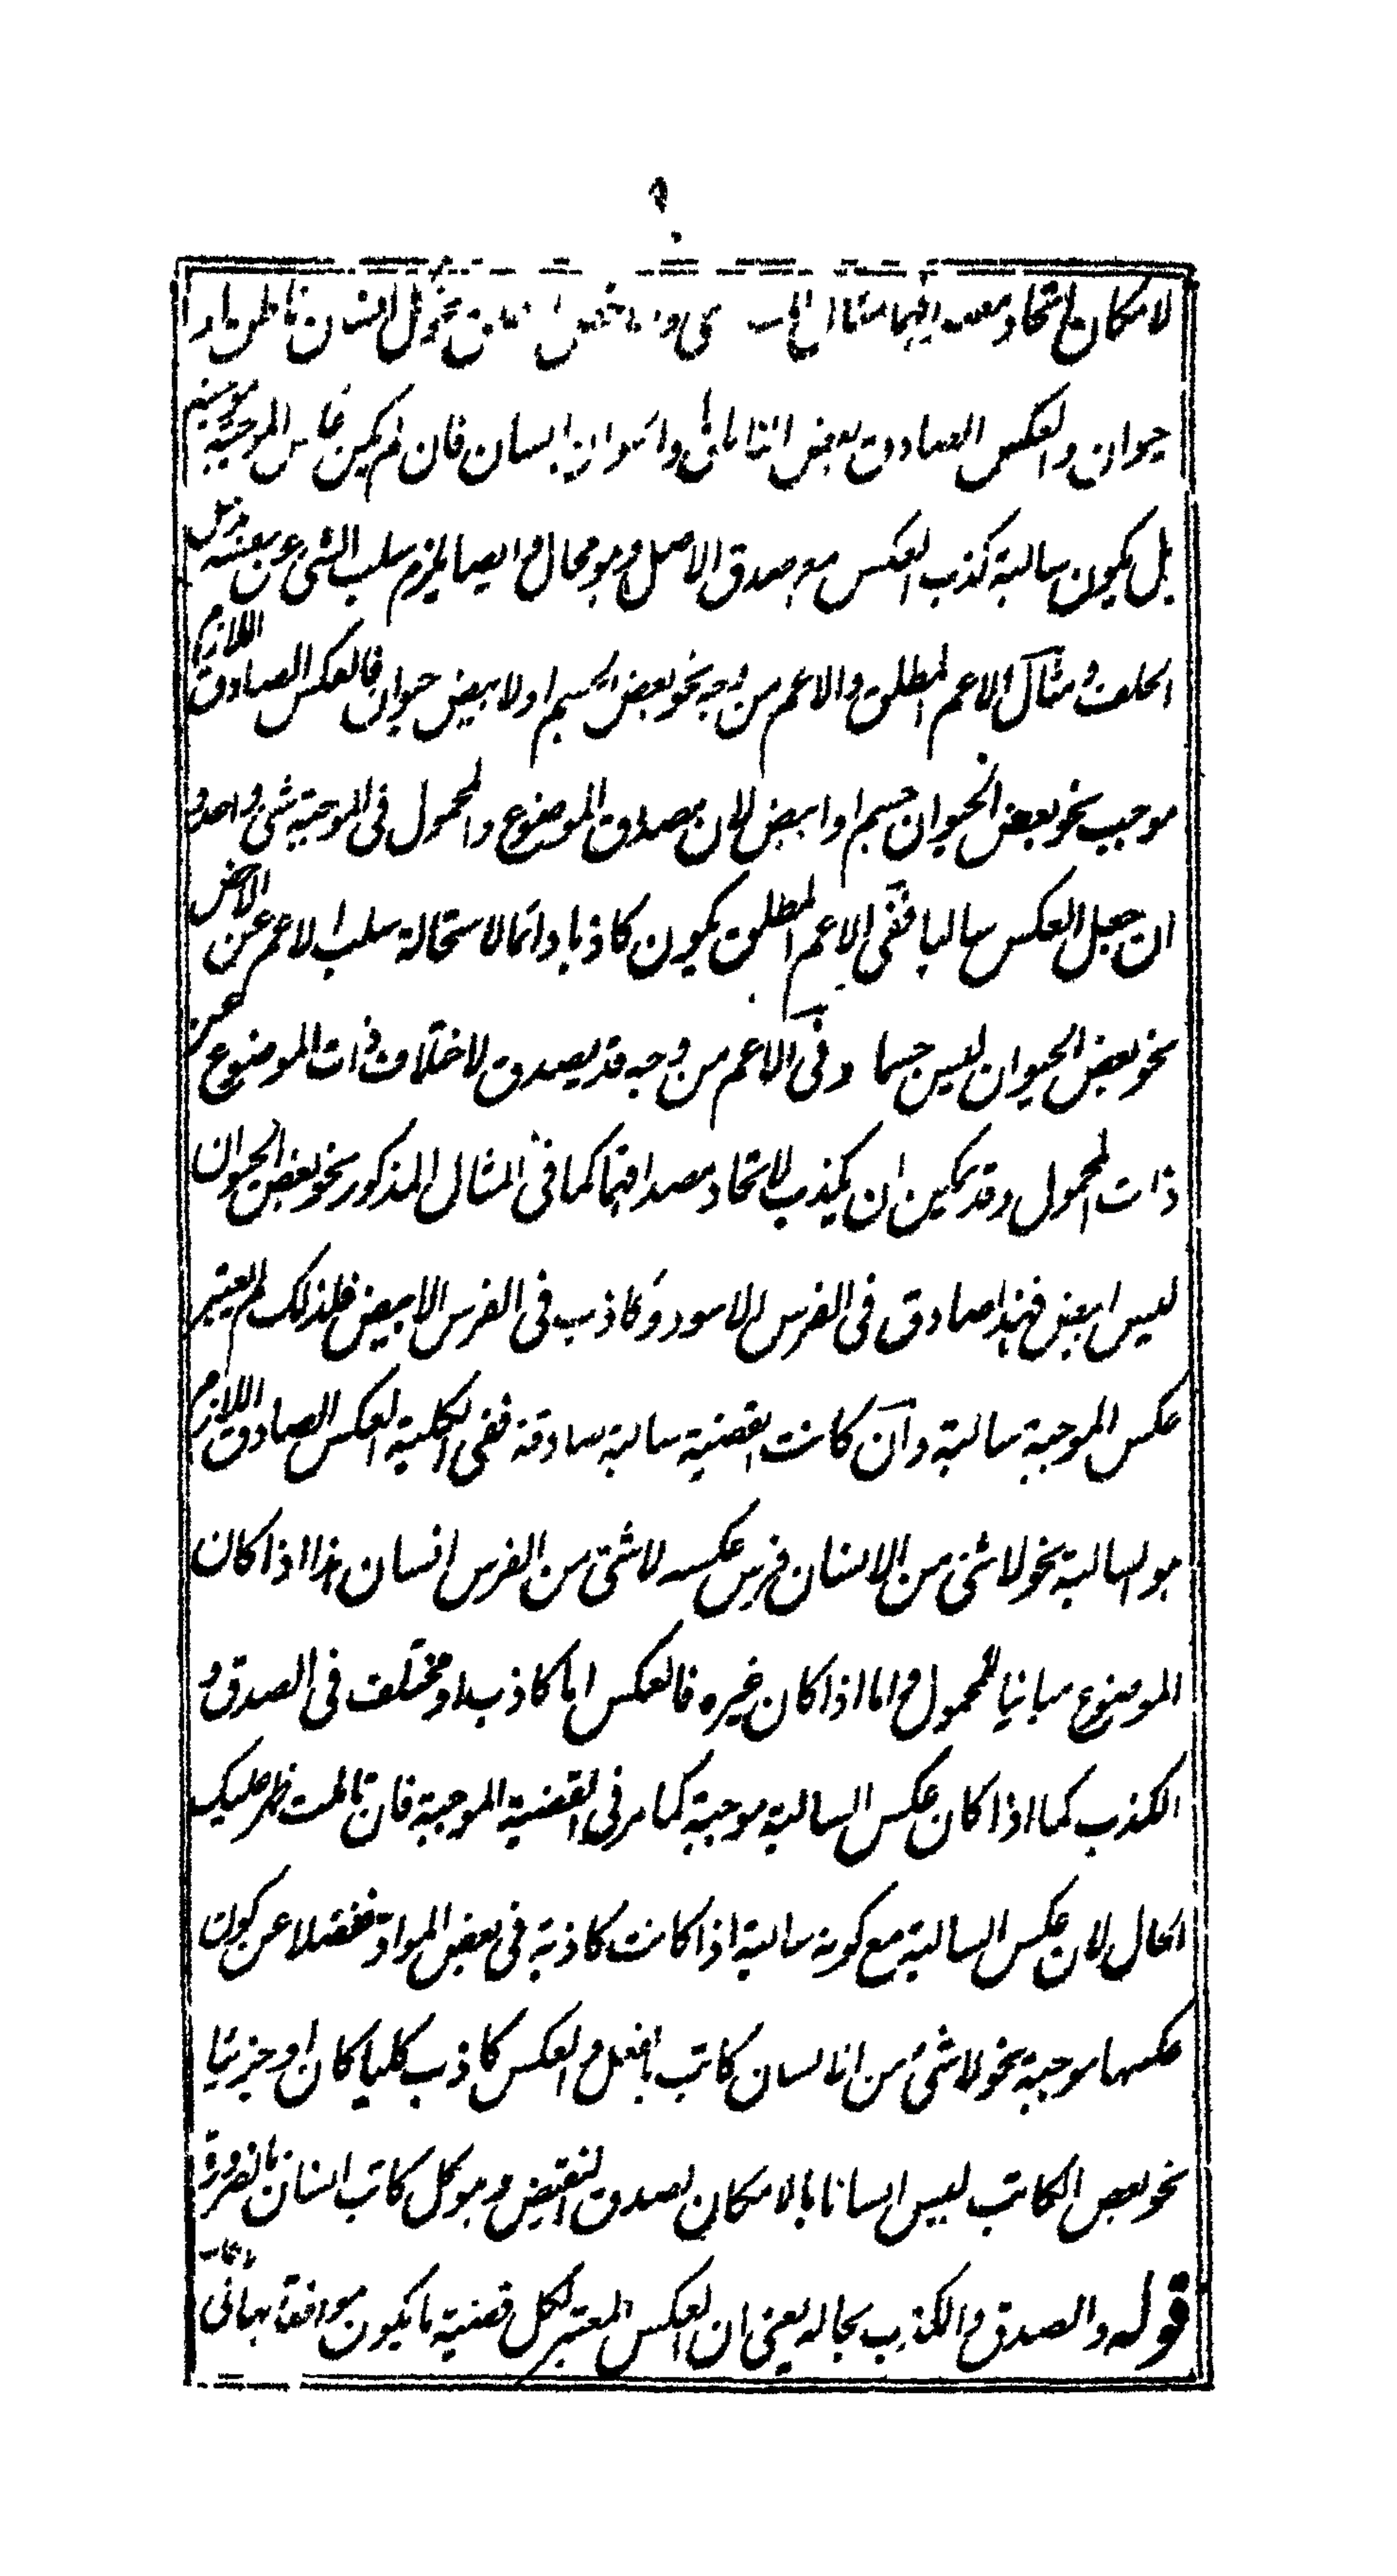 ٩
لامكان اتحاد مثال نحو كل انسان ناطق او
حيوان والعكس الصادق بعض الناطق والحيوان انسان فان لم يكن عكس الموجبة موجبة
بل يكون سالبة كذب العكس مع صدق الاصل وهو محال وايضا يلزم سلب الشئ عن نفسه
الخلف ومثال الاعم المطلق والاعم من وجه نحو بعض الجسم اولابيض حيوان فالعكس الصادق اللازم
موجب نحو بعض الحيوان جسم او ابيض لان مصداق الموضوع والمحمول فى الموجبة شئ واحد و
ان جعل العكس سالبا ففى الاعم المطلق يكون كاذبا دائما لاستحالة سلب الاعم عن الاخص
نحو بعض الحيوان ليس جسما وفى الاعم من وجه قد يصدق لاختلاف ذات الموضوع عن
ذات المحمول وقد يمكن ان يكذب لاتحاد مصداقهما كما فى المثال المذكور نحو بعض الحيوان
ليس ابيض فهذا صادق فى الفرس الاسود وكاذب فى الفرس الابيض فلذلك لم يعتبر
عكس الموجبة سالبة وان كانت القضية سالبة صادقة ففى الكلية العكس الصادق اللازم
هو السالبة نحو لاشئ من الانسان فرس عكسه لاشئ من الفرس انسان هذا اذا كان
الموضوع مبانيا للمحمول واما اذا كان غيره فالعكس اما كاذب او مختلف فى الصدق و
الكذب كما اذا كان عكس السالبة موجبة كما مر فى القضية الموجبة فان تاملت ظهر عليك
الحال لان عكس السالبة مع كونه سالبة اذا كانت كاذبة فى بعض المواد فضلا عن كون
عكسها موجبة نحو لاشئ من الانسان كاتب بالفعل والعكس كاذب كليا كان او جزئيا
نحو بعض الكاتب ليس انسانا بالامكان لصدق النقيض وهو كل كاتب انسان بالضرورة
قوله والصدق والكذب بحاله يعنى ان العكس المعتبر لكل قضية ما يكون موافقا لها فى